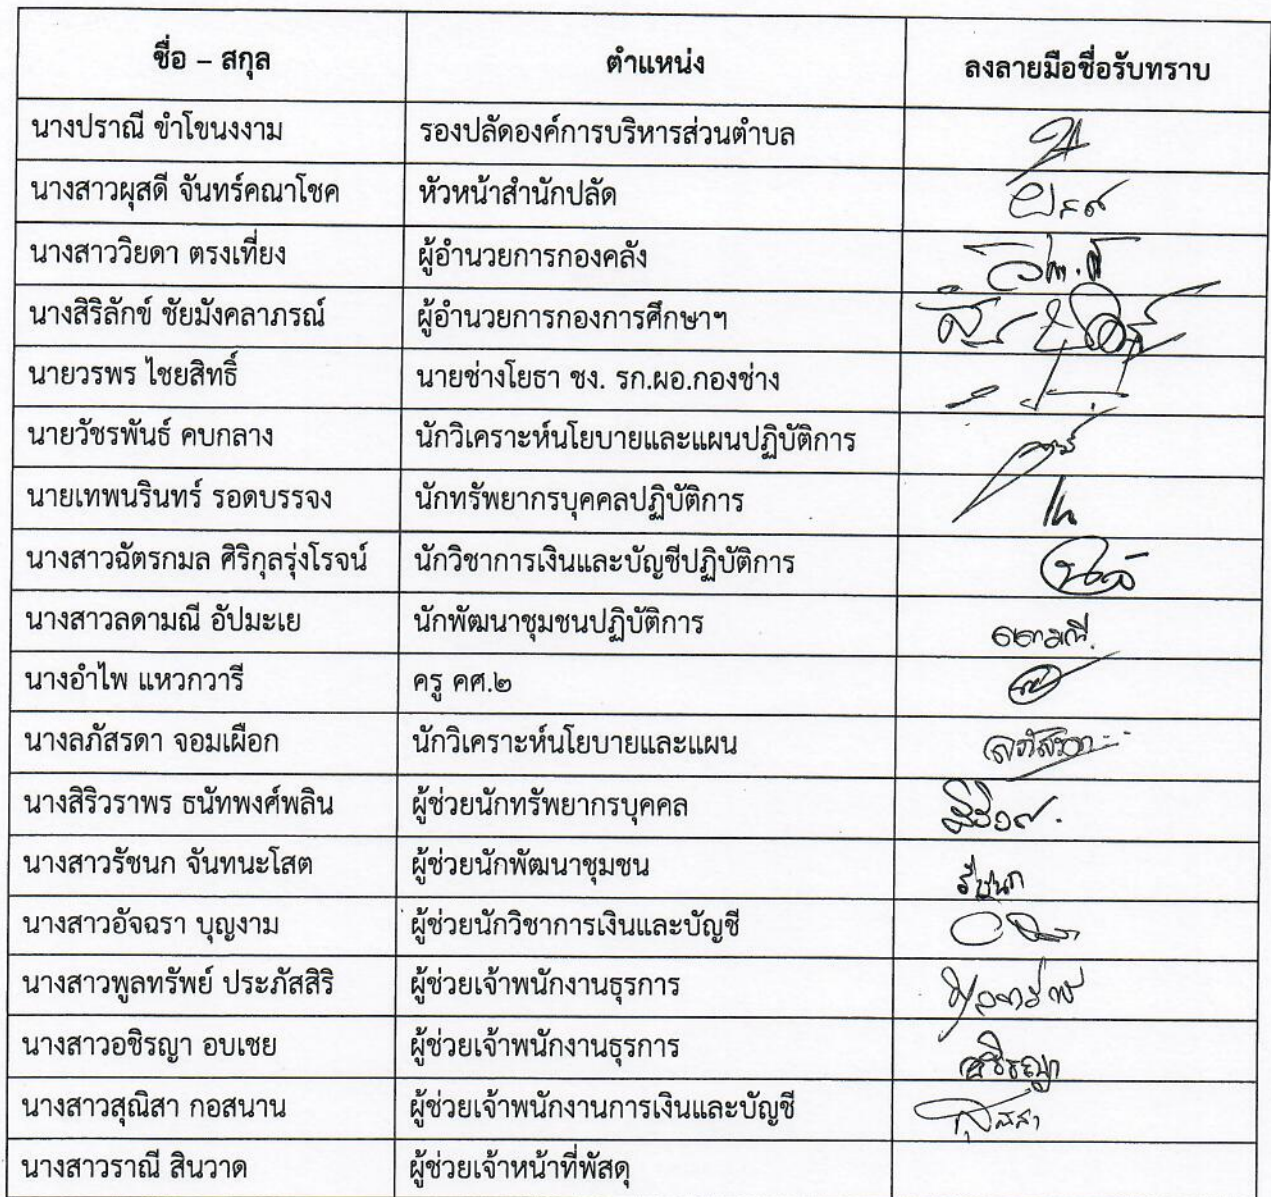 ชื่อ – สกุล ตำแหน่ง ลงลายมือชื่อรับทราบ
นางปราณี ขำโขนงงาม รองปลัดองค์การบริหารส่วนตำบล
นางสาวผุสดี จันทร์คณาโชค หัวหน้าสำนักปลัด
นางสาววิยดา ตรงเที่ยง ผู้อำนวยการกองคลัง
นางสิริลักข์ ชัยมังคลาภรณ์ ผู้อำนวยการกองการศึกษาฯ
นายวรพร ไชยสิทธิ์ นายช่างโยธา ชง. รก.ผอ.กองช่าง
นายวัชรพันธ์ คบกลาง นักวิเคราะห์นโยบายและแผนปฏิบัติการ
นายเทพนรินทร์ รอดบรรจง นักทรัพยากรบุคคลปฏิบัติการ
นางสาวฉัตรกมล ศิริกุลรุ่งโรจน์ นักวิชาการเงินและบัญชีปฏิบัติการ
นางสาวลดามณี อัปมะเย นักพัฒนาชุมชนปฏิบัติการ ลดามณี
นางอำไพ แหวกวารี ครู คศ.๒
นางลภัสรดา จอมเผือก นักวิเคราะห์นโยบายและแผน ลภัสรดา
นางสิริวราพร ธนัทพงศ์พลิน ผู้ช่วยนักทรัพยากรบุคคล
นางสาวรัชนก จันทนะโสต ผู้ช่วยนักพัฒนาชุมชน รัชนก
นางสาวอัจฉรา บุญงาม ผู้ช่วยนักวิชาการเงินและบัญชี
นางสาวพูลทรัพย์ ประภัสสิริ ผู้ช่วยเจ้าพนักงานธุรการ
นางสาวอชิรญา อบเชย ผู้ช่วยเจ้าพนักงานธุรการ อชิรญา
นางสาวสุณิสา กอสนาน ผู้ช่วยเจ้าพนักงานการเงินและบัญชี
นางสาวราณี สินวาด ผู้ช่วยเจ้าหน้าที่พัสดุ